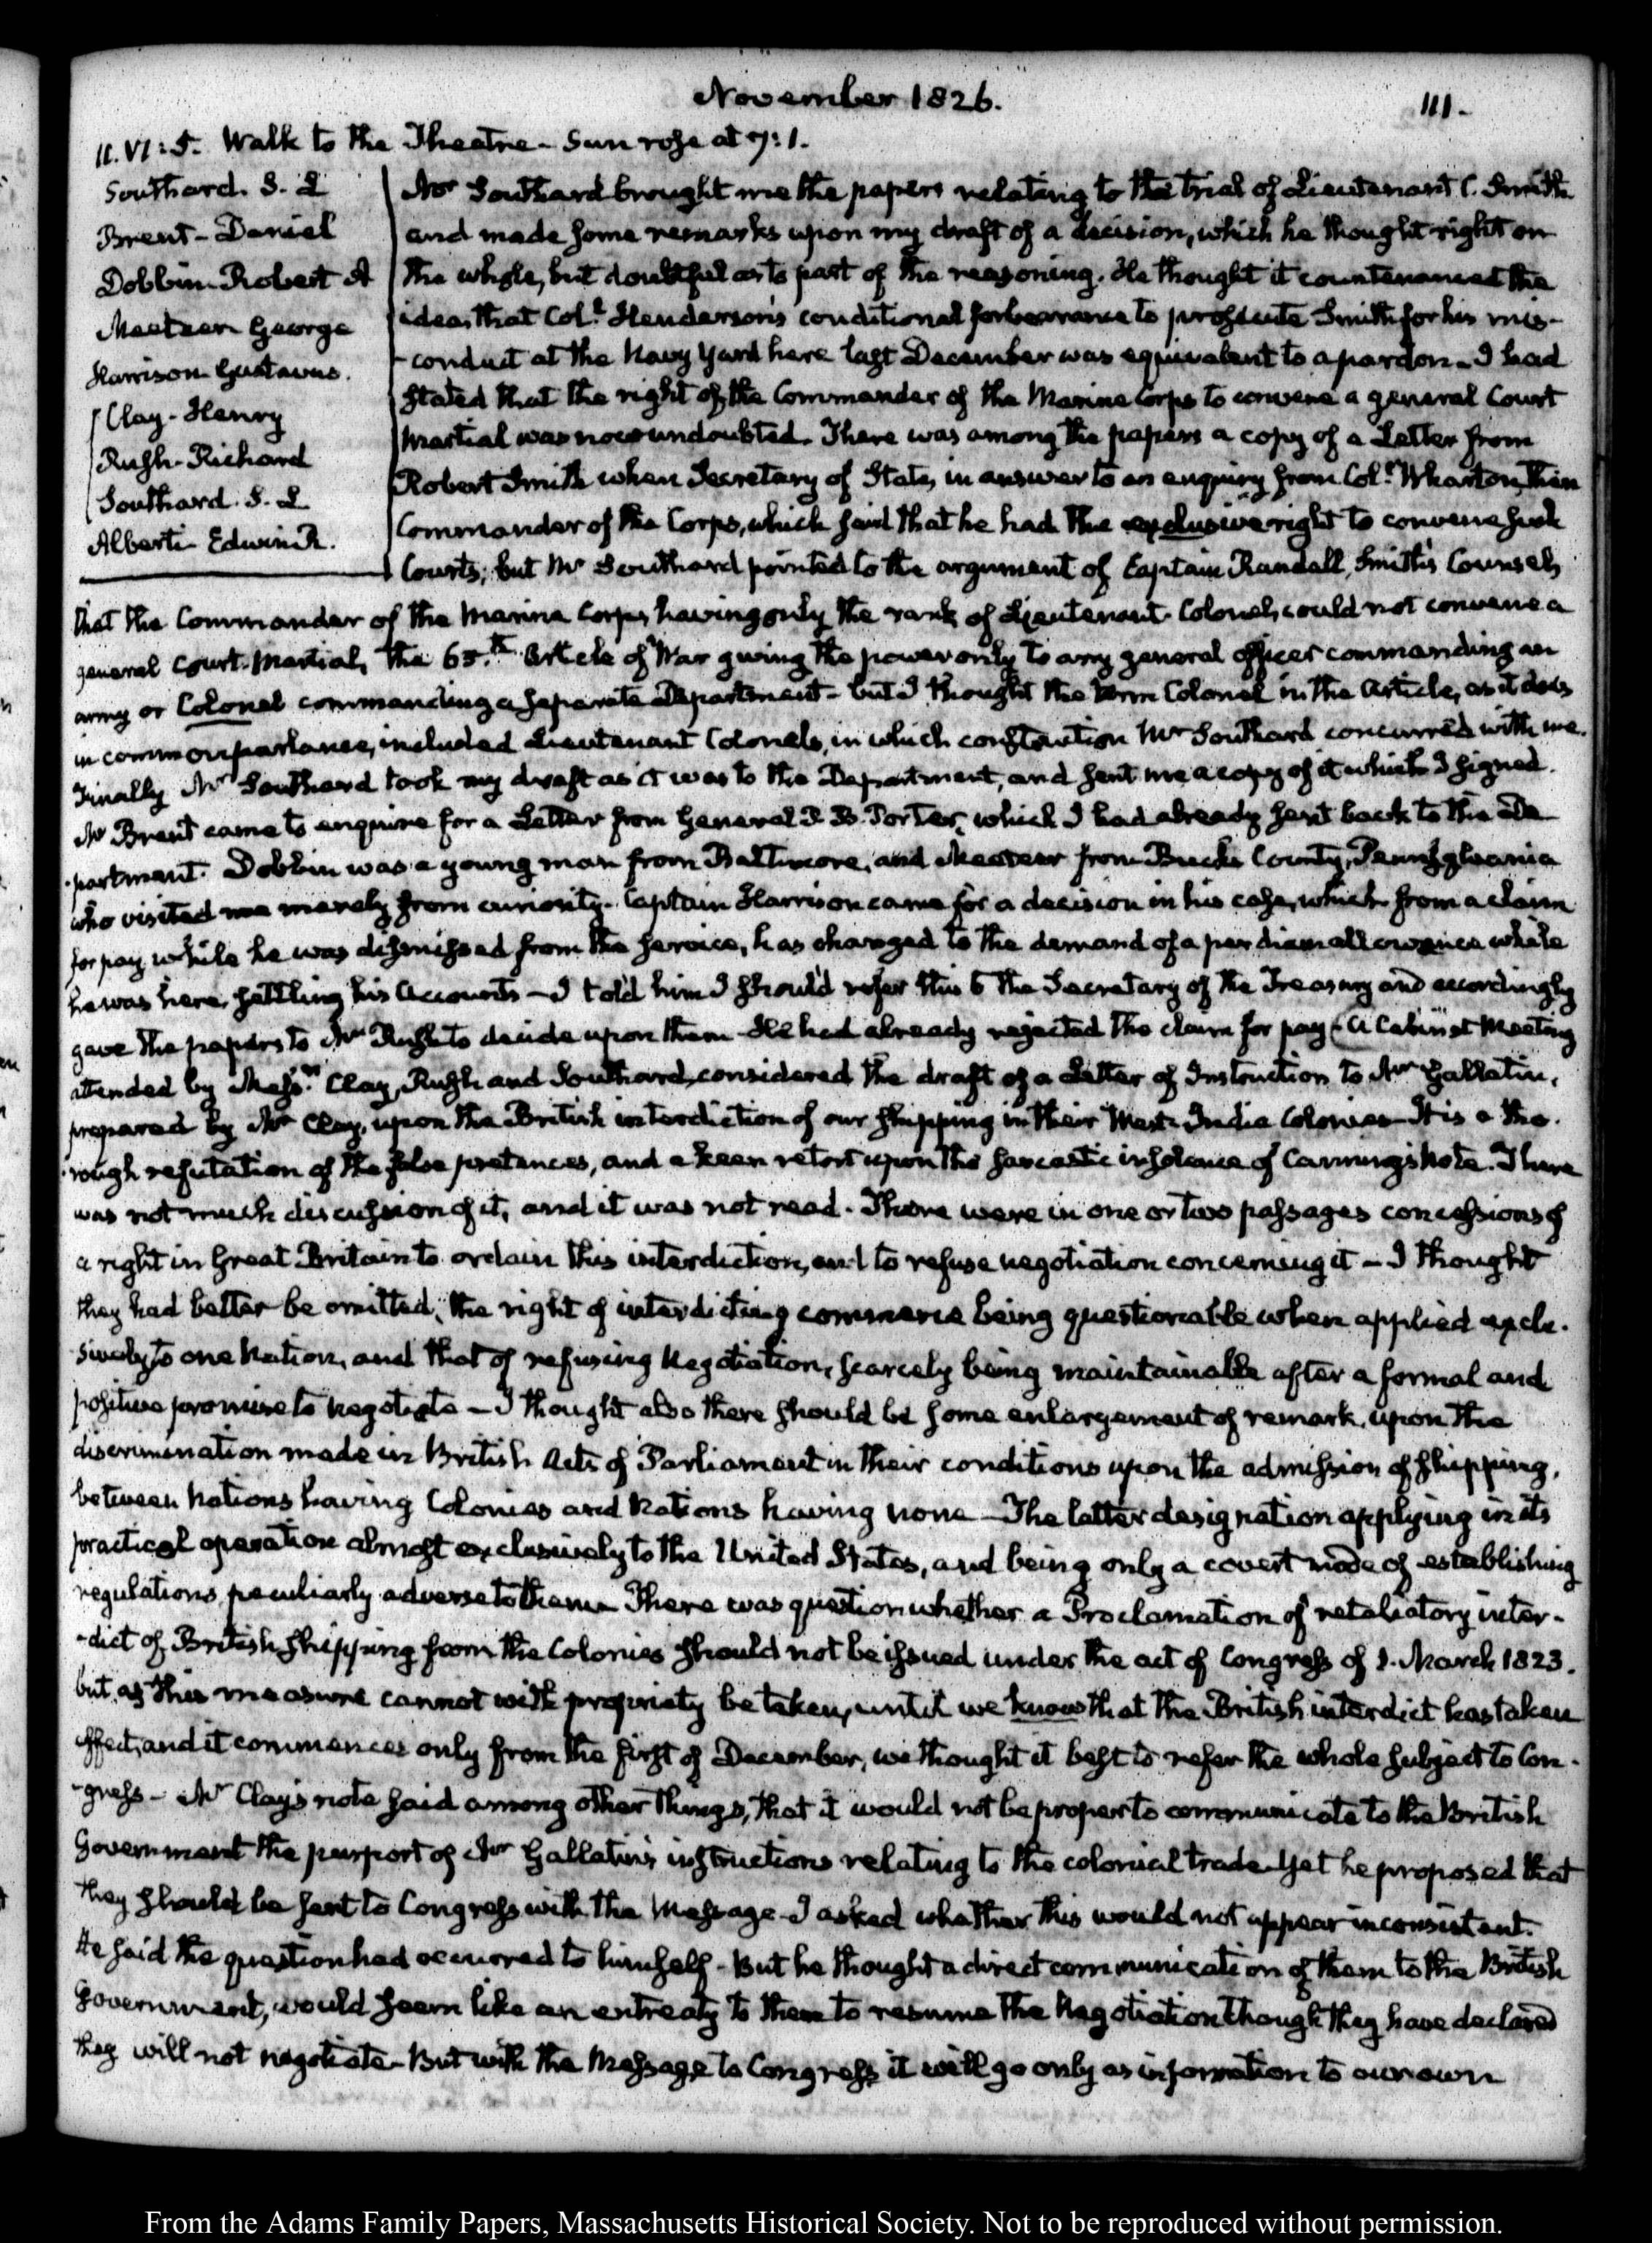 November 1826.
111.
11. VI:5. Walk to the Theatre – Sun rose at 7:1.
Southard. S. L
Brent – Daniel
Dobbin – Robert A
Meeteer George
Harrison Gustavus.
Clay – Henry
Rush – Richard
Southard. S. L
Alberti – Edwin R.
Mr Southard brought me the papers relating to the trial of Lieutenant C. Smith
and made some remarks upon my draft of a decision, which he thought right on
the whole, but doubtful as to part of the reasoning. He thought it countenanced the
idea, that Colt. Henderson's conditional forbearance to prosecute Smith for his mis-
-conduct at the Navy Yard here last December was equivalent to a pardon – I had
stated that the right of the Commander of the Marine Corps to convene a general Court
Martial was not undoubted. There was among the papers a copy of a Letter from
Robert Smith when Secretary of State, in answer to an enquiry from Colt. Wharton, then
Commander of the Corps, which said that he had the exclusive right to convene such
Courts; but Mr Southard pointed to the argument of Captain Randall, Smith's Counsel,
that the Commander of the Marine Corps, having only the rank of Lieutenant Colonel, could not convene a
general Court-Martial, the 65.th Article of War giving the power only to any general officer commanding an
army or Colonel commanding a separate Department – but I thought the term Colonel in the Article, as it does
in common parlance, included Lieutenant Colonels, in which construction Mr Southard concurred with me.
Finally Mr Southard took my draft as it was to the Department, and sent me a copy of it which I signed.
Mr Brent came to enquire for a Letter from General P. B. Porter, which I had already sent back to the De
-partment. Dobbin was a young man from Baltimore, and Meeteer from Bucks County, Pennsylvania
who visited me merely from curiosity. Captain Harrison came for a decision in his case, which from a claim
for pay while he was dismissed from the service, has changed to the demand of a per diem allowance while
he was here, settling his Accounts – I told him I should refer this to the Secretary of the Treasury and accordingly
gave the papers to Mr Rush to decide upon them – He had already rejected the claim for pay – A Cabinet Meeting
attended by Messrs. Clay, Rush and Southard, considered the draft of a Letter of Instruction to Mr Gallatin,
prepared by Mr Clay, upon the British interdiction of our shipping in their West-India Colonies – It is a tho-
-rough refutation of the false pretences, and a keen retort upon the sarcastic insolence of Canning's Note. There
was not much discussion of it, and it was not read. There were in one or two passages concessions of
a right in Great Britain to ordain this interdiction, and to refuse negotiation concerning it – I thought
they had better be omitted, the right of interdicting commerce being questionable when applied exclu-
-sively to one Nation, and that of refusing Negotiation, scarcely being maintainable after a formal and
positive promise to negotiate – I thought also there should be some enlargement of remark, upon the
discrimination made in British Acts of Parliament in their conditions upon the admission of shipping,
between Nations having Colonies and Nations having none – The latter designation applying in its
practical operation almost exclusively to the United States, and being only a covert mode of establishing
regulations peculiarly adverse to them – There was question whether a Proclamation of retaliatory inter-
-dict of British shipping from the Colonies should not be issued under the act of Congress of 1. March 1823.
but as this measure cannot with propriety be taken, until we know that the British interdict has taken
effect, and it commences only from the first of December, we thought it best to refer the whole subject to Con-
-gress – Mr Clay's note said among other things, that it would not be proper to communicate to the British
Government the purport of Mr Gallatin's instructions relating to the colonial trade. Yet he proposed that
they should be sent to Congress with the Message – I asked whether this would not appear inconsistent.
He said the question had occurred to himself – But he thought a direct communication of them to the British
Government, would seem like an entreaty to them to resume the Negotiation though they have declared
they will not negotiate – But with the Message to Congress it will go only as information to our own
From the Adams Family Papers, Massachusetts Historical Society. Not to be reproduced without permission.